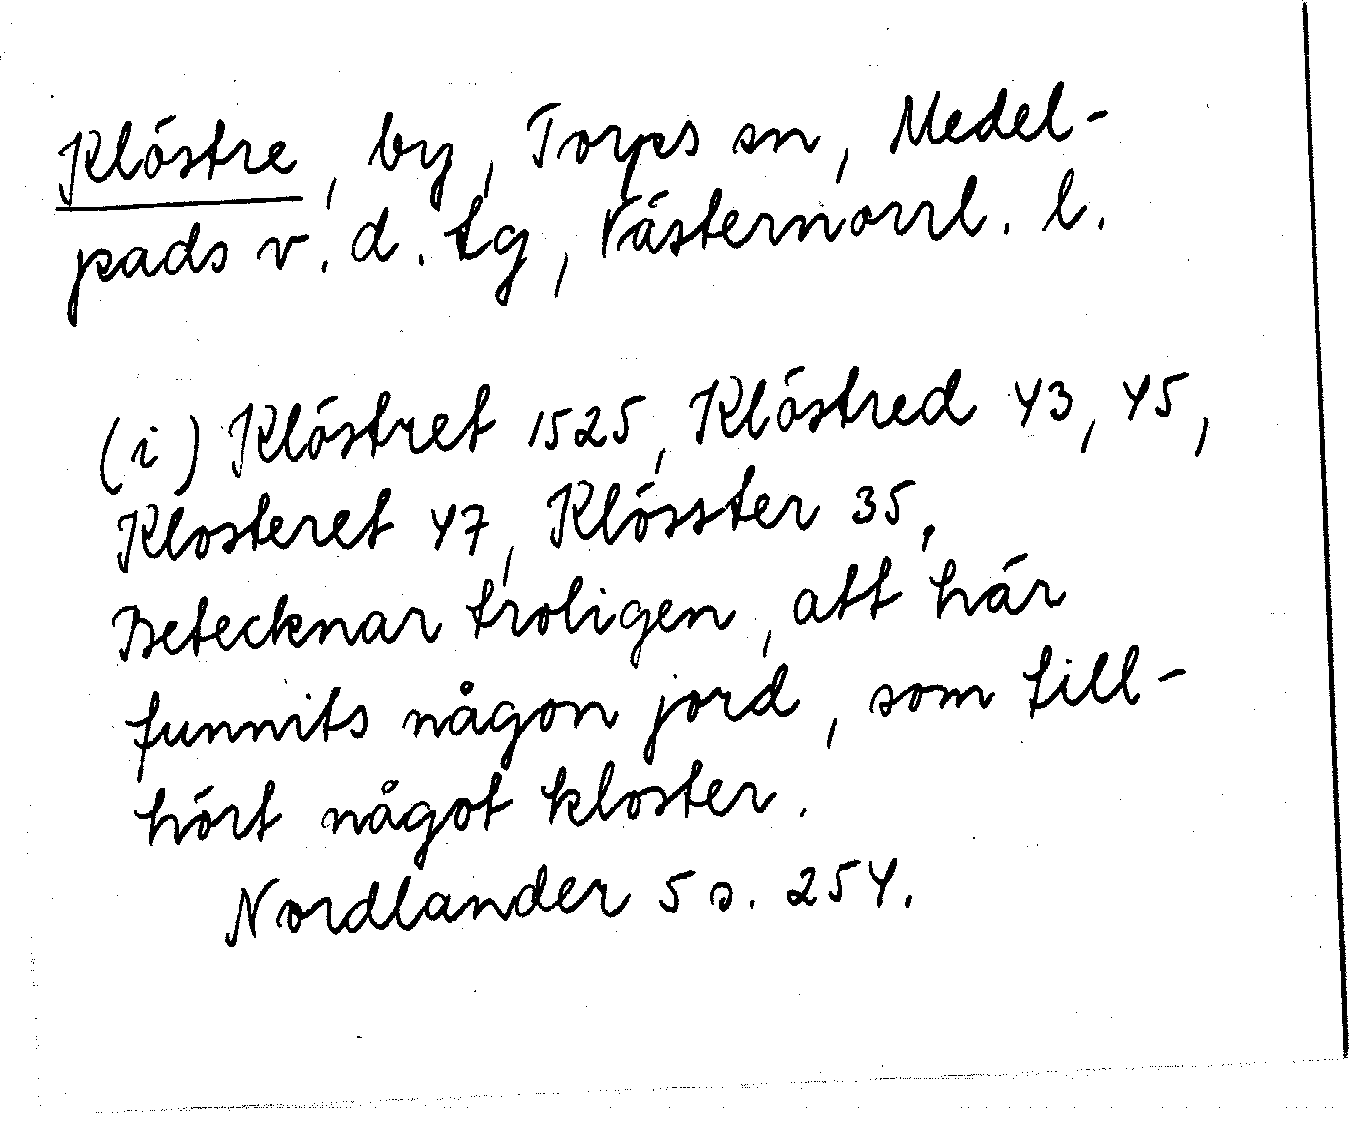 Klöstre, by, Torps sn, Medel-
pads v. d. tg, Västernorrl. l.
(i) Klöstret 1525, Klöstred 43, 45,
Klosteret 47, Klösster 35.
Betecknar troligen, att här
funnits någon jord, som till-
hört något kloster.
Nordlander 5 s. 254.